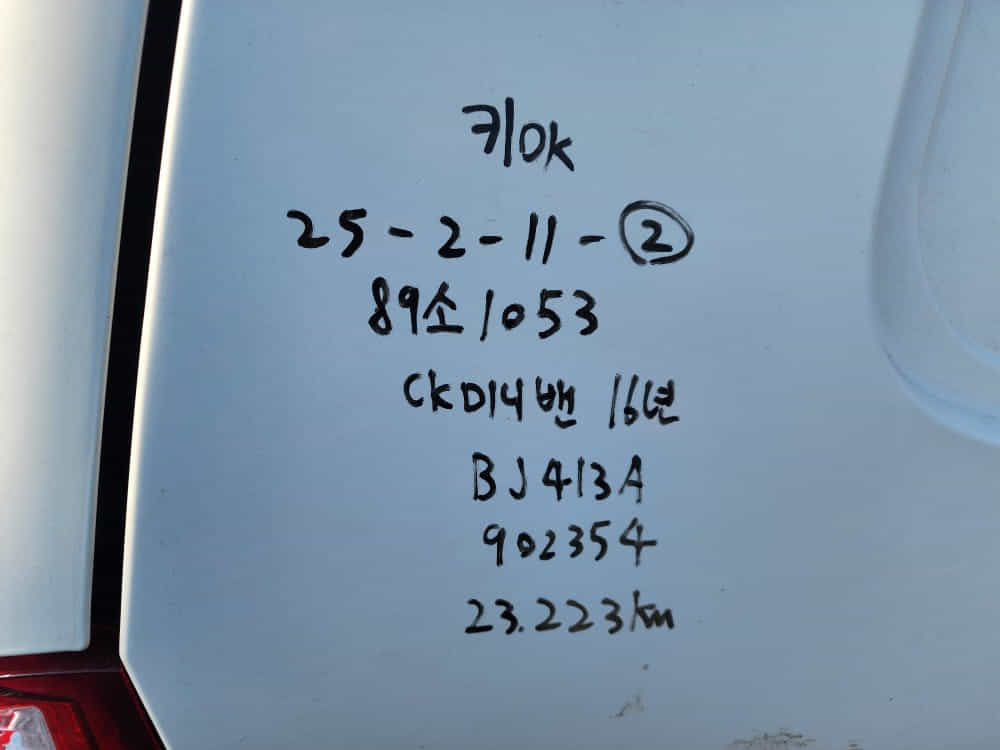 키ok
25-2-11-②
89소1053
CK미니밴 16년
BJ413A
902354
23.223km